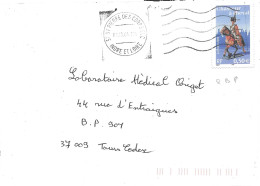 INDRE ET LOIRE
0,50 €
RBP
Laboratoire Médical Origet
44 rue d'Entraigues
B.P. 904
37009 Tours Cedex